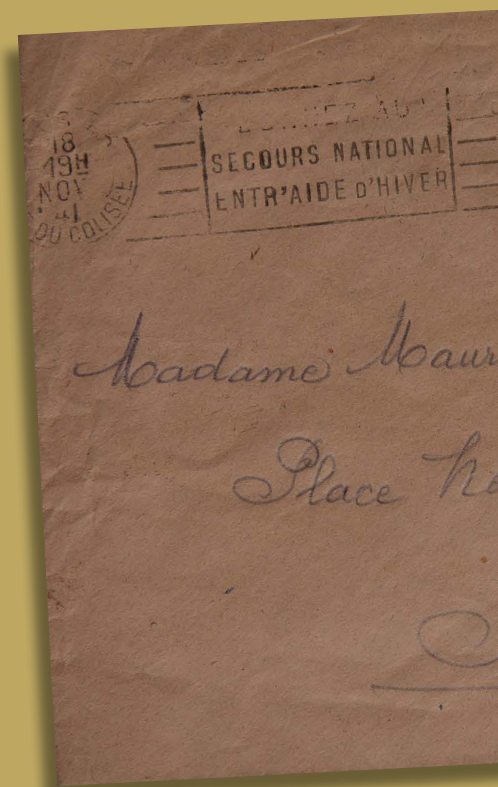 18
19H
NOV
41
DU COLISÉE
DONNEZ AU
SECOURS NATIONAL
ENTR'AIDE D'HIVER
Madame Maur
Place